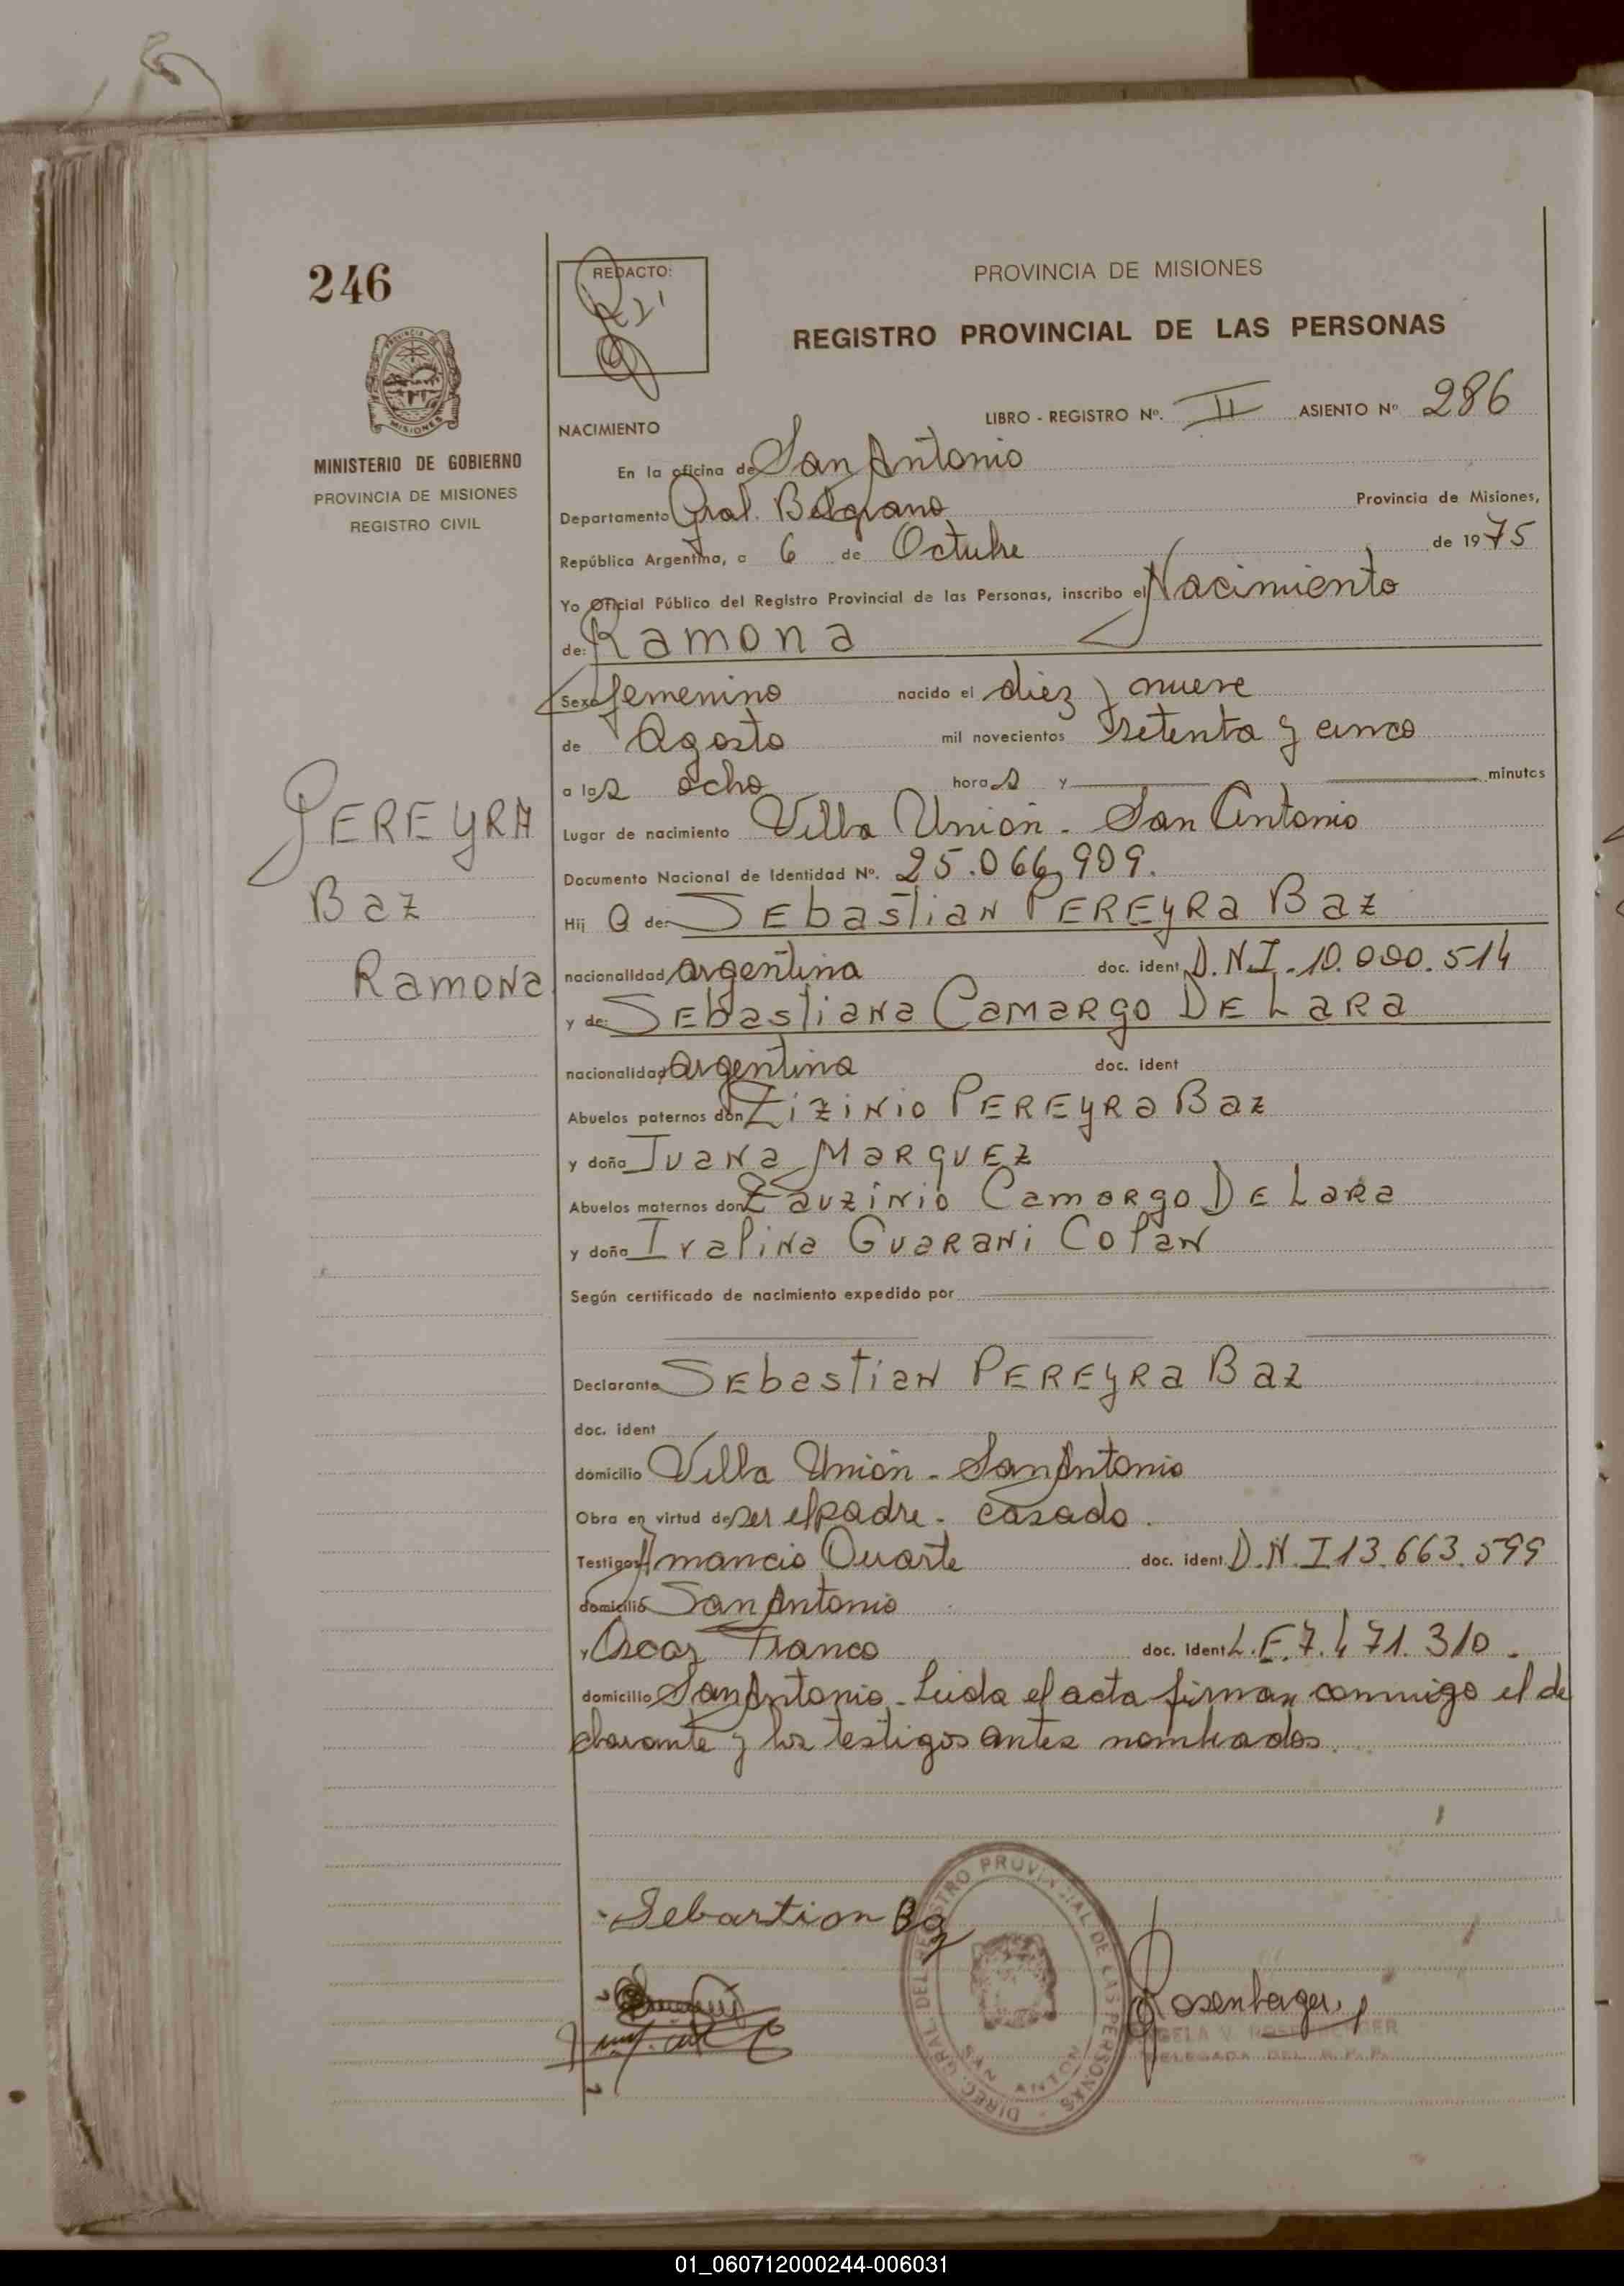 246
PROVINCIA DE MISIONES
MINISTERIO DE GOBIERNO
PROVINCIA DE MISIONES
REGISTRO CIVIL
REDACTO:
PROVINCIA DE MISIONES
REGISTRO PROVINCIAL DE LAS PERSONAS
LIBRO - REGISTRO Nº. II ASIENTO Nº 286
NACIMIENTO
En la oficina de San Antonio
Departamento Gral. Belgrano Provincia de Misiones,
República Argentina, a 6 de Octubre de 1975
Yo Oficial Público del Registro Provincial de las Personas, inscribo el Nacimiento
de: Ramona
Sexo femenino nacido el diez y nueve
de Agosto mil novecientos setenta y cinco
a las ocho horas y minutos
Lugar de nacimiento Villa Unión - San Antonio
Documento Nacional de Identidad Nº. 25.066,909.
Hij a de: SEbastian PEREyRa Baz
nacionalidad argentina doc. ident D.N.I. 10.000.514
y de: SEbastiana Camargo DE Lara
nacionalidad argentina doc. ident
Abuelos paternos don Zizinio PEREyRa Baz
y doña Juana MarquEz
Abuelos maternos don Zauzinio Camargo DE Lara
y doña Ivalina Guarani Colan
Según certificado de nacimiento expedido por
Declarante SEbastian PEREyRa Baz
doc. ident
domicilio Villa Unión - San Antonio
Obra en virtud de ser el padre - casado.
Testigos Amancio Duarte doc. ident. D.N.I 13.663.599
domicilio San Antonio
y Oscar Franco doc. ident L.E. 7.471.310.
domicilio San Antonio - Leida el acta firman conmigo el de
clarante y los testigos antes nombrados.
PEREyRA
Baz
Ramona
Sebastian Baz
DIREC. GRAL. DEL REGISTRO PROVINCIAL DE LAS PERSONAS
SAN ANTONIO
Rosenberger
ANGELA V. ROSENBERGER
DELEGADA DEL R. P. P.
01_060712000244-006031